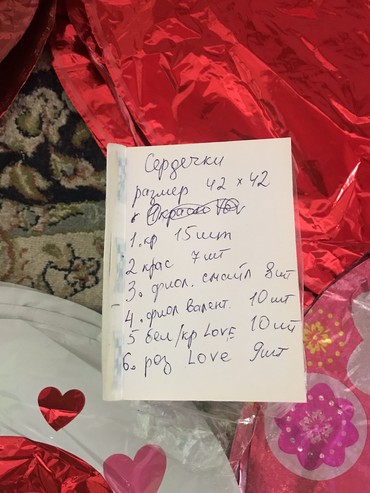 Сердечки
размер 42 × 42
1. кр 15шт
2 крас 7шт
3. фиол. смайл 8шт
4. фиол валент. 10шт
5 бел/кр LOVE 10шт
6. роз Love 9шт